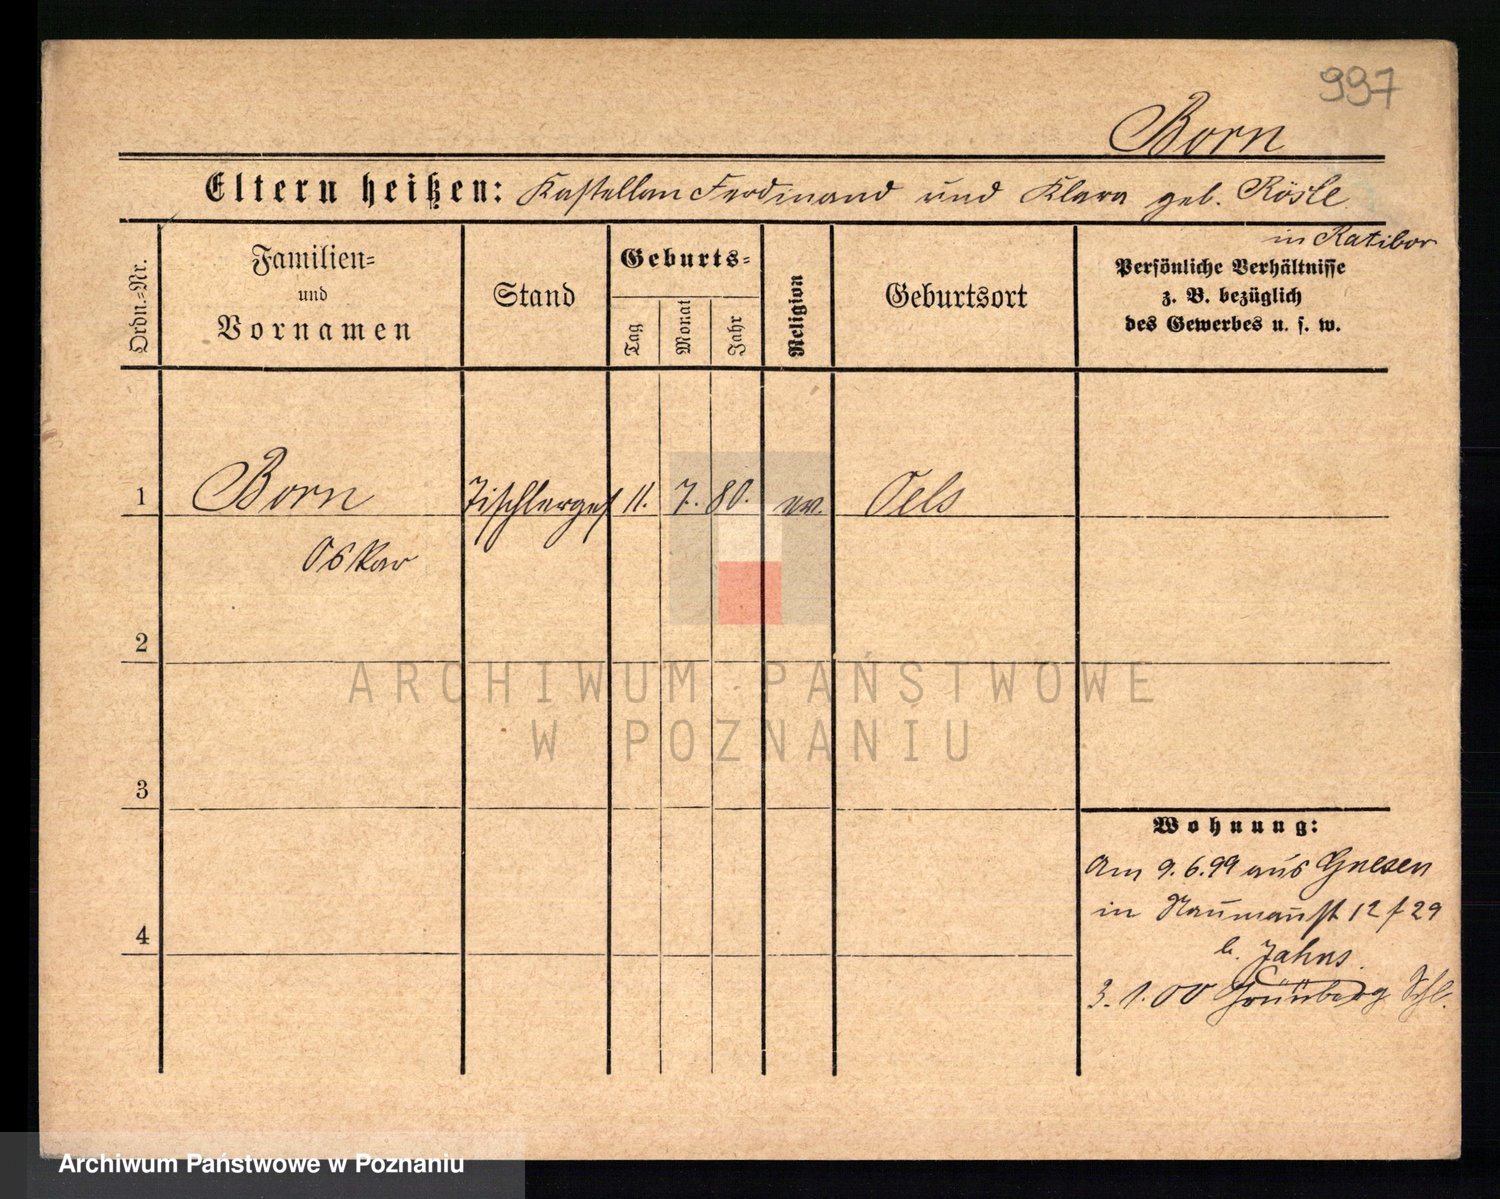 997
Born
Eltern heißen: Kastellan Ferdinand und Klara geb.
in Ratibor
Ordn.-Nr.
Familien-
und
Vornamen
Stand
Geburts-
Tag
Monat
Jahr
Religion
Geburtsort
Persönliche Verhältnisse
z. B. bezüglich
des Gewerbes u. s. w.
1 Born Tischlerges 11. 7. 80. ev. Oels
Oskar
2
3
4
ARCHIWUM PAŃSTWOWE
W POZNANIU
Wohnung:
Am 9.6.99 aus Gnesen
in Naumannst 12 f 29
b. Jahns.
3. 1. 00 Grünberg Schl.
Archiwum Państwowe w Poznaniu